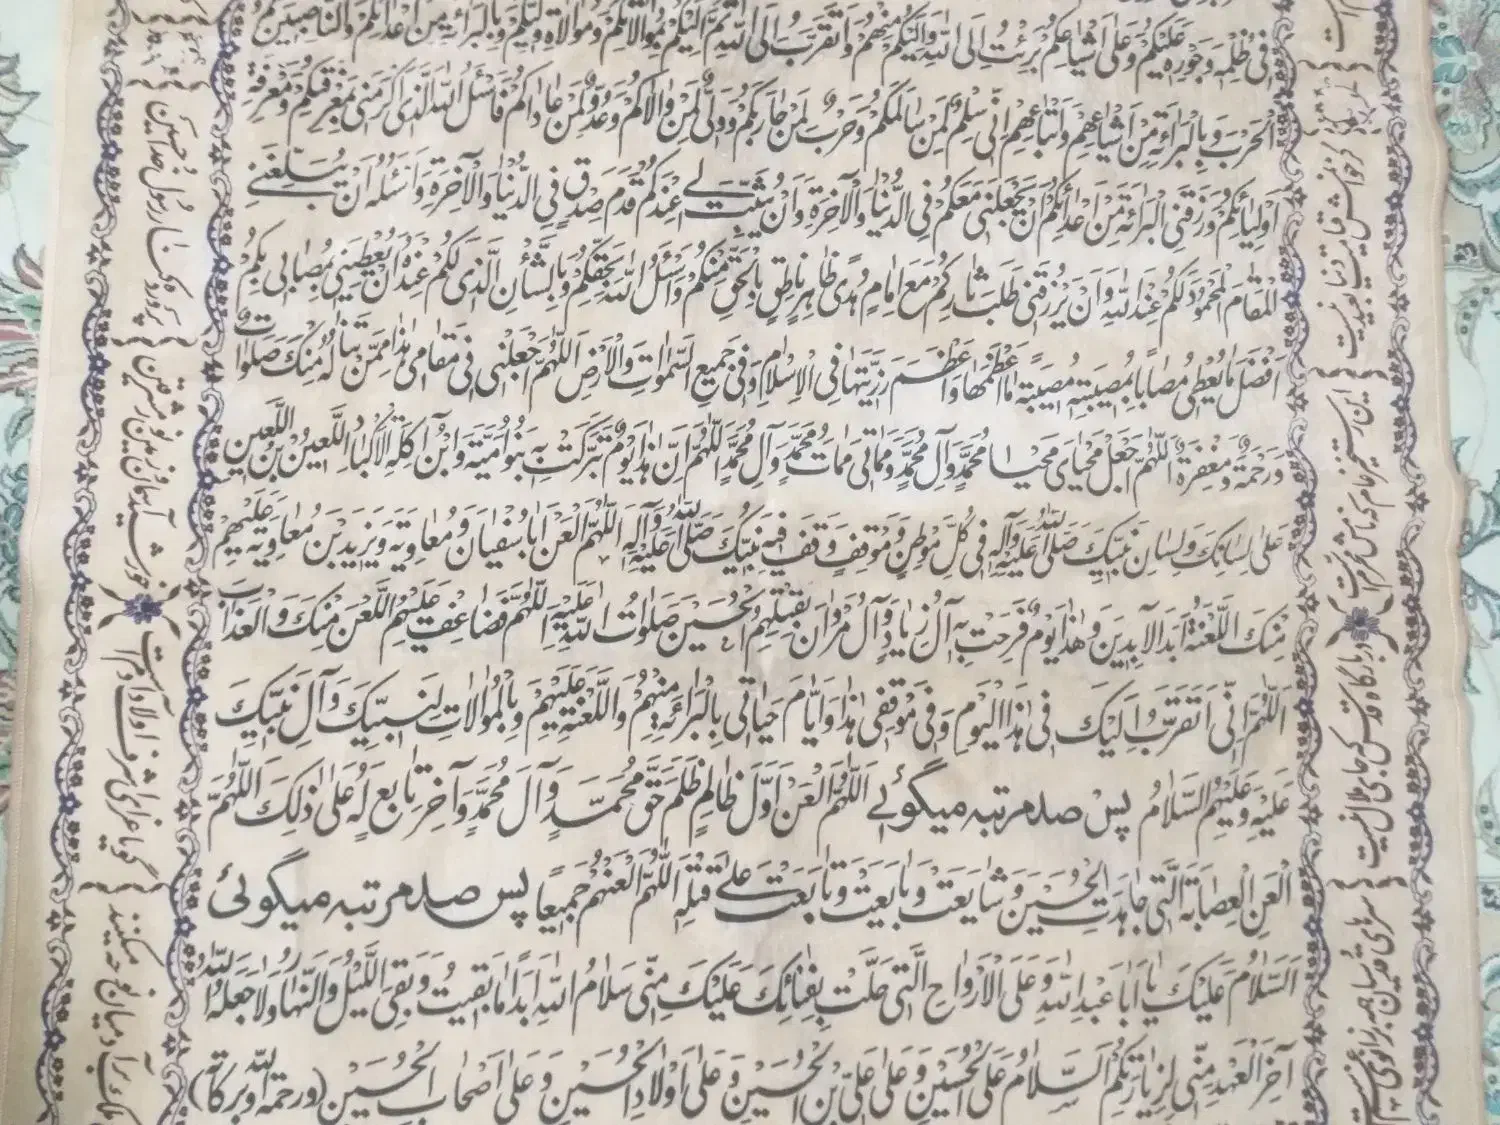 فِی ظُلْمِهِ وَجَوْرِهِ عَلَیْکُمْ وَعَلٰی اَشْیاعِکُمْ بَرِئْتُ اِلَی اللهِ وَاِلَیْکُمْ مِنْهُمْ وَاَتَقَرَّبُ اِلَی اللهِ ثُمَّ اِلَیْکُمْ بِمُوالاتِکُمْ وَمُوالاةِ وَلِیِّکُمْ وَبِالْبَراءَةِ مِنْ اَعْدائِکُمْ وَالنّاصِبینَ لَکُمُ
الْحَرْبَ وَبِالْبَراءَةِ مِنْ اَشْیاعِهِمْ وَاَتْباعِهِمْ اِنّی سِلْمٌ لِمَنْ سالَمَکُمْ وَحَرْبٌ لِمَنْ حارَبَکُمْ وَوَلِیٌّ لِمَنْ والاکُمْ وَعَدُوٌّ لِمَنْ عاداکُمْ فَاَسْئَلُ اللهَ الَّذی اَکْرَمَنی بِمَعْرِفَتِکُمْ وَمَعْرِفَةِ
اَوْلِیائِکُمْ وَرَزَقَنِی الْبَرائَةَ مِنْ اَعْدائِکُمْ اَنْ یَجْعَلَنی مَعَکُمْ فِی الدُّنْیا وَالْآخِرَةِ وَاَنْ یُثَبِّتَ لی عِنْدَکُمْ قَدَمَ صِدْقٍ فِی الدُّنْیا وَالْآخِرَةِ وَاَسْئَلُهُ اَنْ یُبَلِّغَنِی
الْمَقامَ الْمَحْمُودَ لَکُمْ عِنْدَ اللهِ وَاَنْ یَرْزُقَنی طَلَبَ ثارِکُمْ مَعَ اِمامٍ هُدًی ظاهِرٍ ناطِقٍ بِالْحَقِّ مِنْکُمْ وَاَسْئَلُ اللهَ بِحَقِّکُمْ وَبِالشَّأْنِ الَّذی لَکُمْ عِنْدَهُ اَنْ یُعْطِیَنی بِمُصابی بِکُمْ
اَفْضَلَ ما یُعْطی مُصاباً بِمُصیبَتِهِ مُصیبَةً ما اَعْظَمَها وَاَعْظَمَ رَزِیَّتَها فِی الْاِسْلامِ وَفی جَمیعِ السَّمٰواتِ وَالْاَرْضِ اَللّٰهُمَّ اجْعَلْنی فی مَقامی هٰذا مِمَّنْ تَنالُهُ مِنْکَ صَلَواتٌ
وَرَحْمَةٌ وَمَغْفِرَةٌ اَللّٰهُمَّ اجْعَلْ مَحْیایَ مَحْیا مُحَمَّدٍ وَآلِ مُحَمَّدٍ وَمَماتی مَماتَ مُحَمَّدٍ وَآلِ مُحَمَّدٍ اَللّٰهُمَّ اِنَّ هٰذا یَوْمٌ تَبَرَّکَتْ بِهِ بَنُو اُمَیَّةَ وَابْنُ آکِلَةِ الْاَکْبادِ اللَّعینُ بْنُ اللَّعینِ
عَلٰی لِسانِکَ وَلِسانِ نَبِیِّکَ صَلَّی اللهُ عَلَیْهِ وَآلِهِ فی کُلِّ مَوْطِنٍ وَمَوْقِفٍ وَقَفَ فیهِ نَبِیُّکَ صَلَّی اللهُ عَلَیْهِ وَآلِهِ اَللّٰهُمَّ الْعَنْ اَباسُفْیانَ وَمُعاوِیَةَ وَیَزیدَ بْنَ مُعاوِیَةَ عَلَیْهِمْ
مِنْکَ اللَّعْنَةُ اَبَدَ الْآبِدینَ وَهٰذا یَوْمٌ فَرِحَتْ بِهِ آلُ زِیادٍ وَآلُ مَرْوانَ بِقَتْلِهِمُ الْحُسَیْنَ صَلَواتُ اللهِ عَلَیْهِ اَللّٰهُمَّ فَضاعِفْ عَلَیْهِمُ اللَّعْنَ مِنْکَ وَالْعَذابَ
اَللّٰهُمَّ اِنّی اَتَقَرَّبُ اِلَیْکَ فی هٰذَا الْیَوْمِ وَفی مَوْقِفی هٰذا وَاَیّامِ حَیاتی بِالْبَرائَةِ مِنْهُمْ وَاللَّعْنَةِ عَلَیْهِمْ وَبِالْمُوالاتِ لِنَبِیِّکَ وَآلِ نَبِیِّکَ
عَلَیْهِ وَعَلَیْهِمُ السَّلامُ پس صد مرتبه میگوئی اَللّٰهُمَّ الْعَنْ اَوَّلَ ظالِمٍ ظَلَمَ حَقَّ مُحَمَّدٍ وَآلِ مُحَمَّدٍ وَآخِرَ تابِعٍ لَهُ عَلٰی ذٰلِکَ اَللّٰهُمَّ
الْعَنِ الْعِصابَةَ الَّتی جاهَدَتِ الْحُسَیْنَ وَشایَعَتْ وَبایَعَتْ وَتابَعَتْ عَلٰی قَتْلِهِ اَللّٰهُمَّ الْعَنْهُمْ جَمیعاً پس صد مرتبه میگوئی
اَلسَّلامُ عَلَیْکَ یا اَبا عَبْدِ اللهِ وَعَلَی الْاَرْواحِ الَّتی حَلَّتْ بِفِنائِکَ عَلَیْکَ مِنّی سَلامُ اللهِ اَبَداً ما بَقیتُ وَبَقِیَ اللَّیْلُ وَالنَّهارُ وَلا جَعَلَهُ اللهُ
آخِرَ الْعَهْدِ مِنّی لِزِیارَتِکُمْ اَلسَّلامُ عَلَی الْحُسَیْنِ وَعَلٰی عَلِیِّ بْنِ الْحُسَیْنِ وَعَلٰی اَوْلادِ الْحُسَیْنِ وَعَلٰی اَصْحابِ الْحُسَیْنِ (ورحمة الله وبرکاته)
گر خوانمش قیامت دنیا بعید نیست
این رستخیز عام که نامش محرم است
در بارگاه قدس که جای ملال نیست
سرهای قدسیان همه بر زانوی غم است
جن و ملک بر آدمیان نوحه میکنند
گویا عزای اشرف اولاد آدم است
خورشید آسمان و زمین نور مشرقین
پرورده کنار رسول خدا حسین